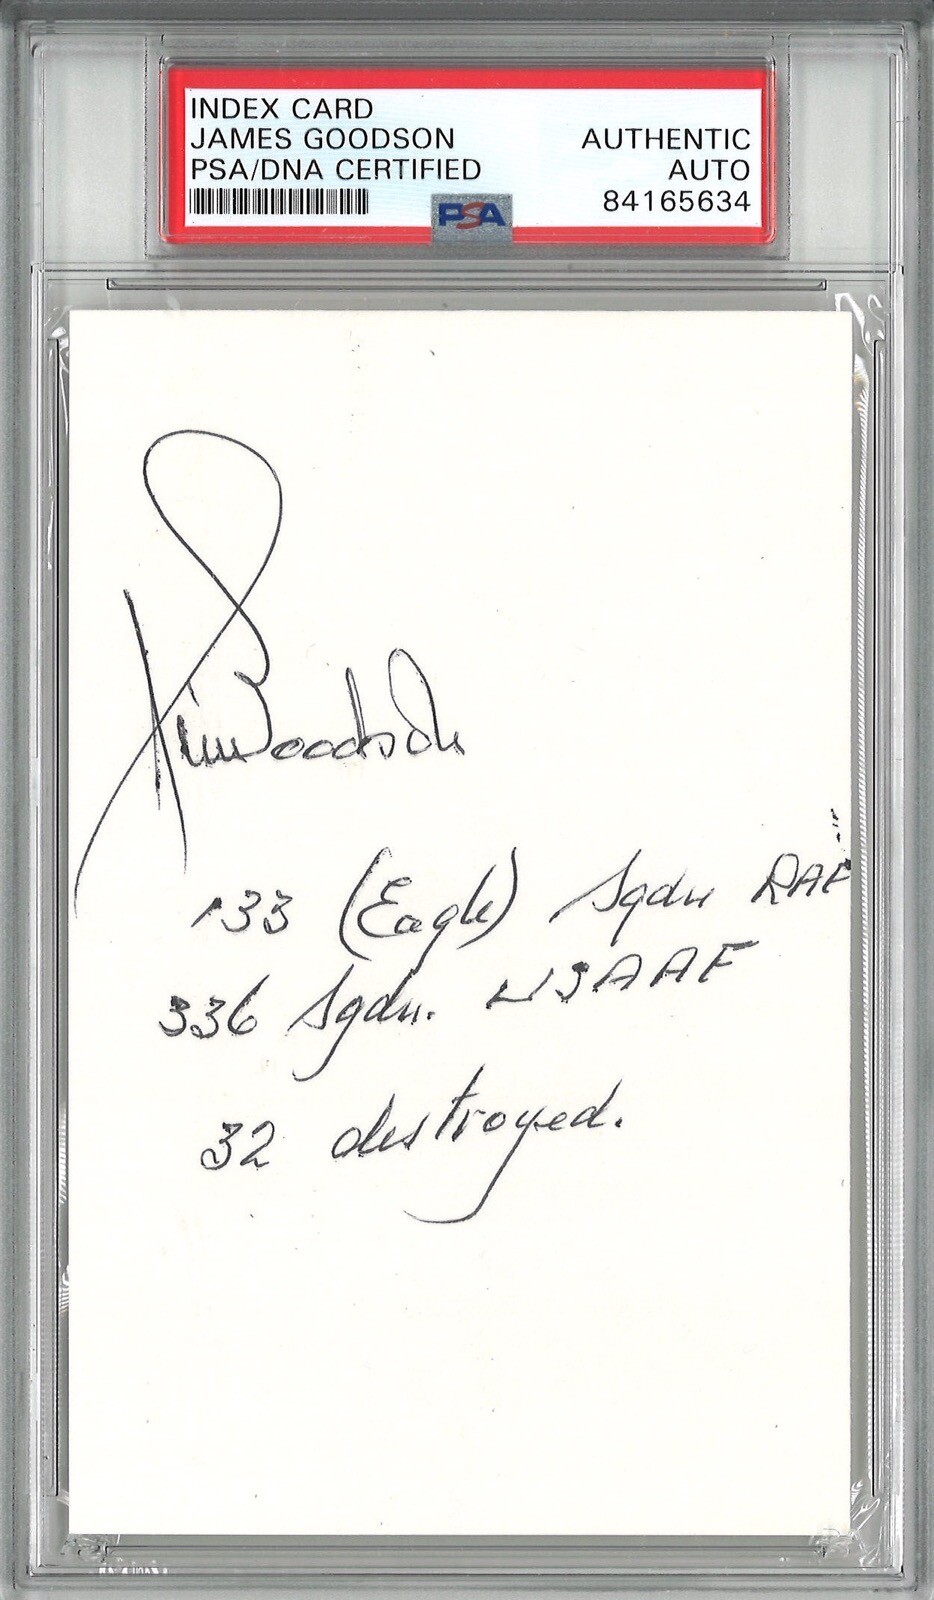 INDEX CARD
JAMES GOODSON
PSA/DNA CERTIFIED
AUTHENTIC
AUTO
84165634
PSA
Jim Goodson
133 (Eagle) Sqdn RAF
336 Sqdn. USAAF
32 destroyed.